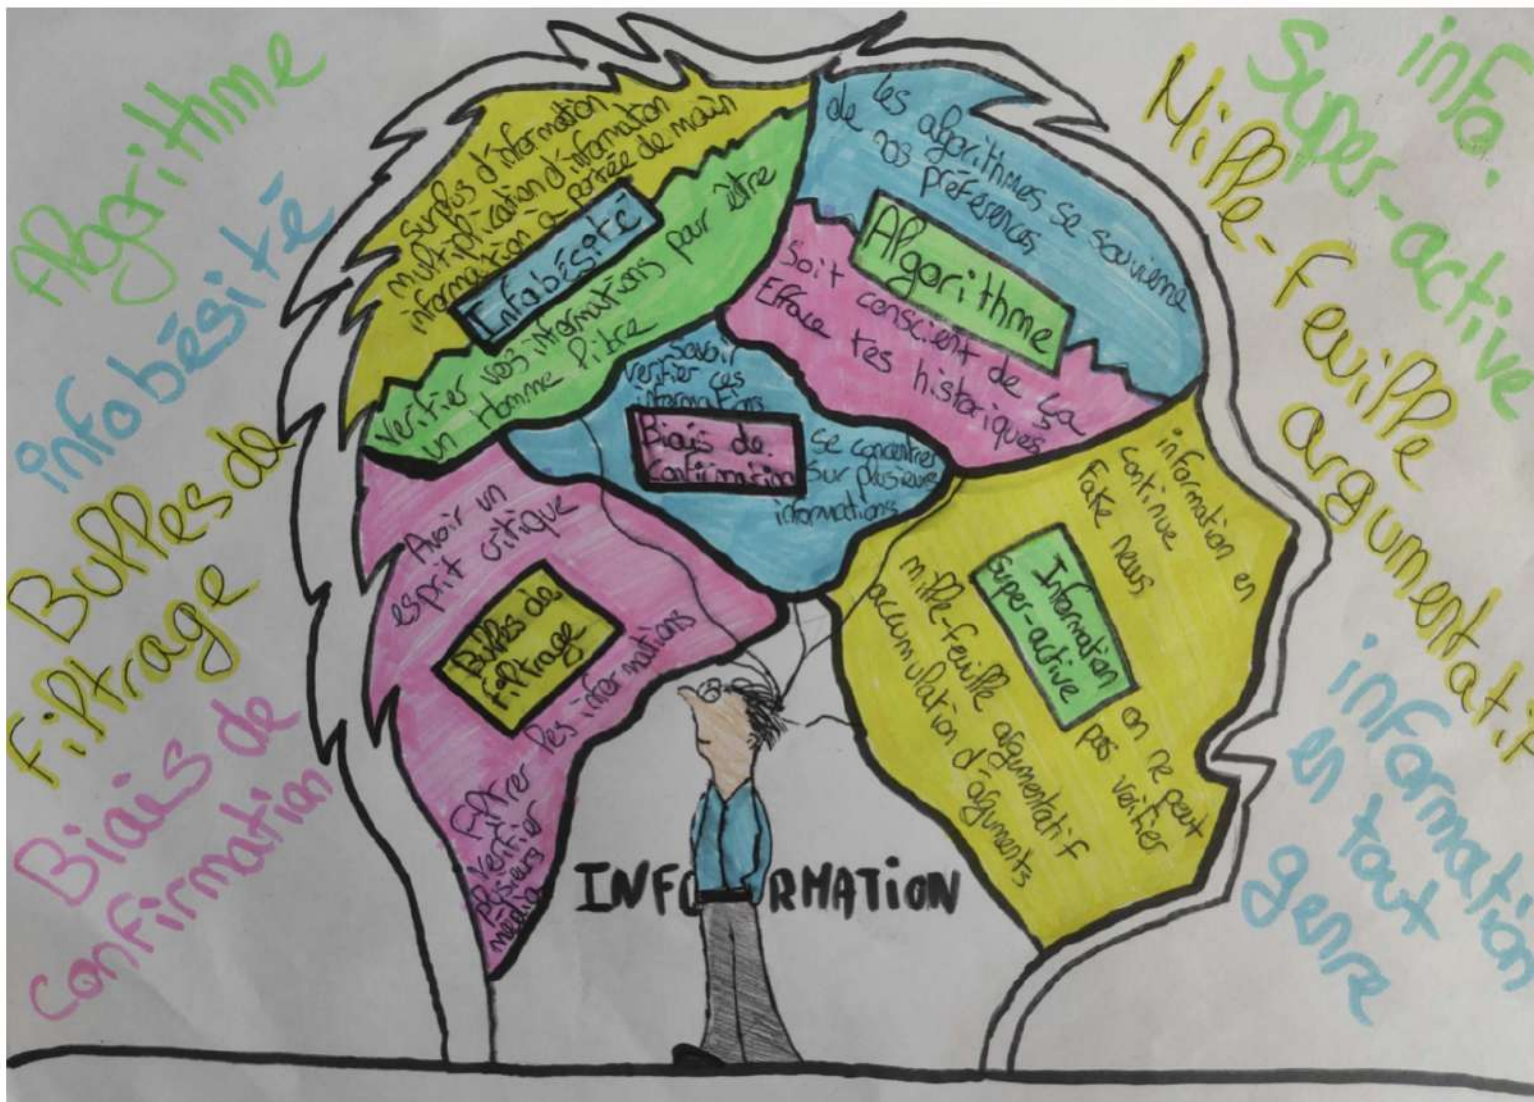 Algorithme
infobésité
Bulles de
filtrage
Biais de
confirmation
Surplus d'information
multiplication d'information
information à portée de main
Infobésité
verifier vos informations pour être
un Homme libre
les algorithmes se souviene
de nos préférences
Algorithme
Soit conscient de ça
Efface tes historiques
savoir
verifier ces
informations
Biais de
confirmation
se concentrer
sur plusieurs
informations
Avoir un
esprit critique
Bulles de
filtrage
Filtrer les informations
Verifier
plusieurs
médias
information en
continue
Fake news
Information
super-active
on ne peut
pas verifier
mille-feuille argumentatif
accumulation d'arguments
INFORMATION
info.
Super-active
Mille-feuille
argumentatif
information
en tout
genre